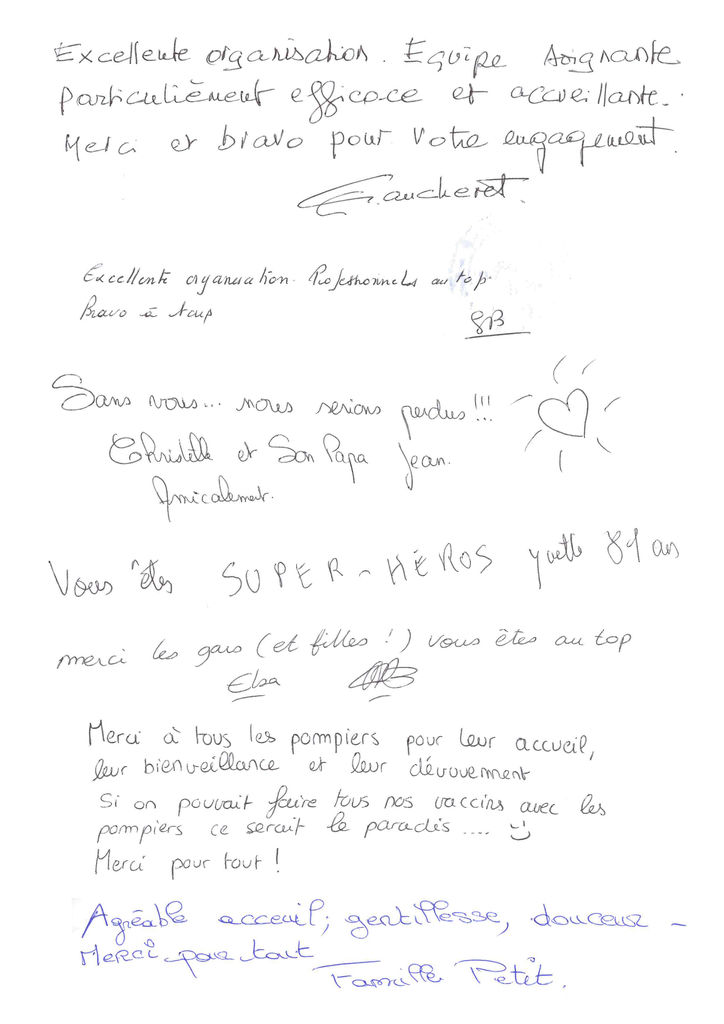 Excellente organisation. Equipe soignante
particulièrement efficace et accueillante.
Merci et bravo pour votre engagement.
E. Gaucheret.
Excellente organisation. Professionnels au top.
Bravo à tous
SB
Sans vous... nous serions perdus !!!
Christelle et Son Papa Jean.
Amicalement.
Vous êtes SUPER-HÉROS yvette 81 ans
merci les gars (et filles !) vous êtes au top
Elsa
Merci à tous les pompiers pour leur accueil,
leur bienveillance et leur dévouement
Si on pouvait faire tous nos vaccins avec les
pompiers ce serait le paradis ....
Merci pour tout !
Agréable acceuil; gentillesse, douceur -
Merci pour tout
Famille Petit.